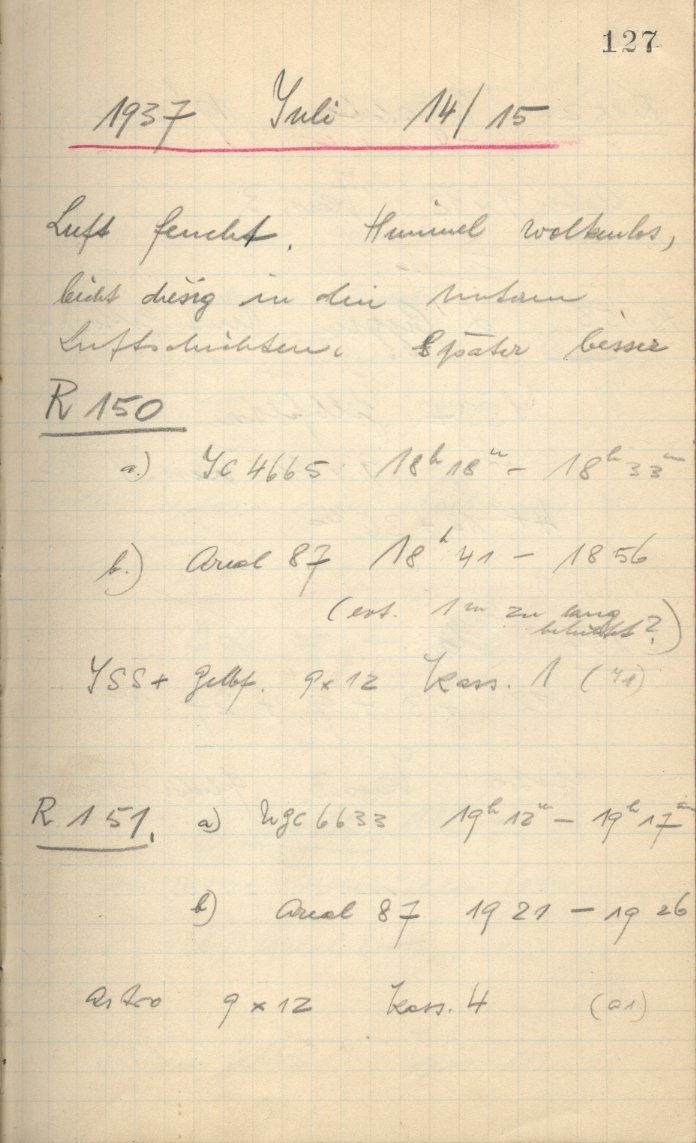 127
1937 Juli 14/15
Luft feucht. Himmel wolkenlos,
leicht diesig in den unteren
Luftschichten. Später besser
R 150
a.) IC 4665 18h 18m - 18h 33m
b.) Areal 87 18h 41 - 18 56
(evt. 1m zu lang
belichtet?)
ISS + Gelbf. 9x12 Kass. 1 (Y1)
R 151. a) NGC 6633 19h 12m - 19h 17m
b) Areal 87 19 21 - 19 26
Astro 9 x 12 Kass. 4 (a1)